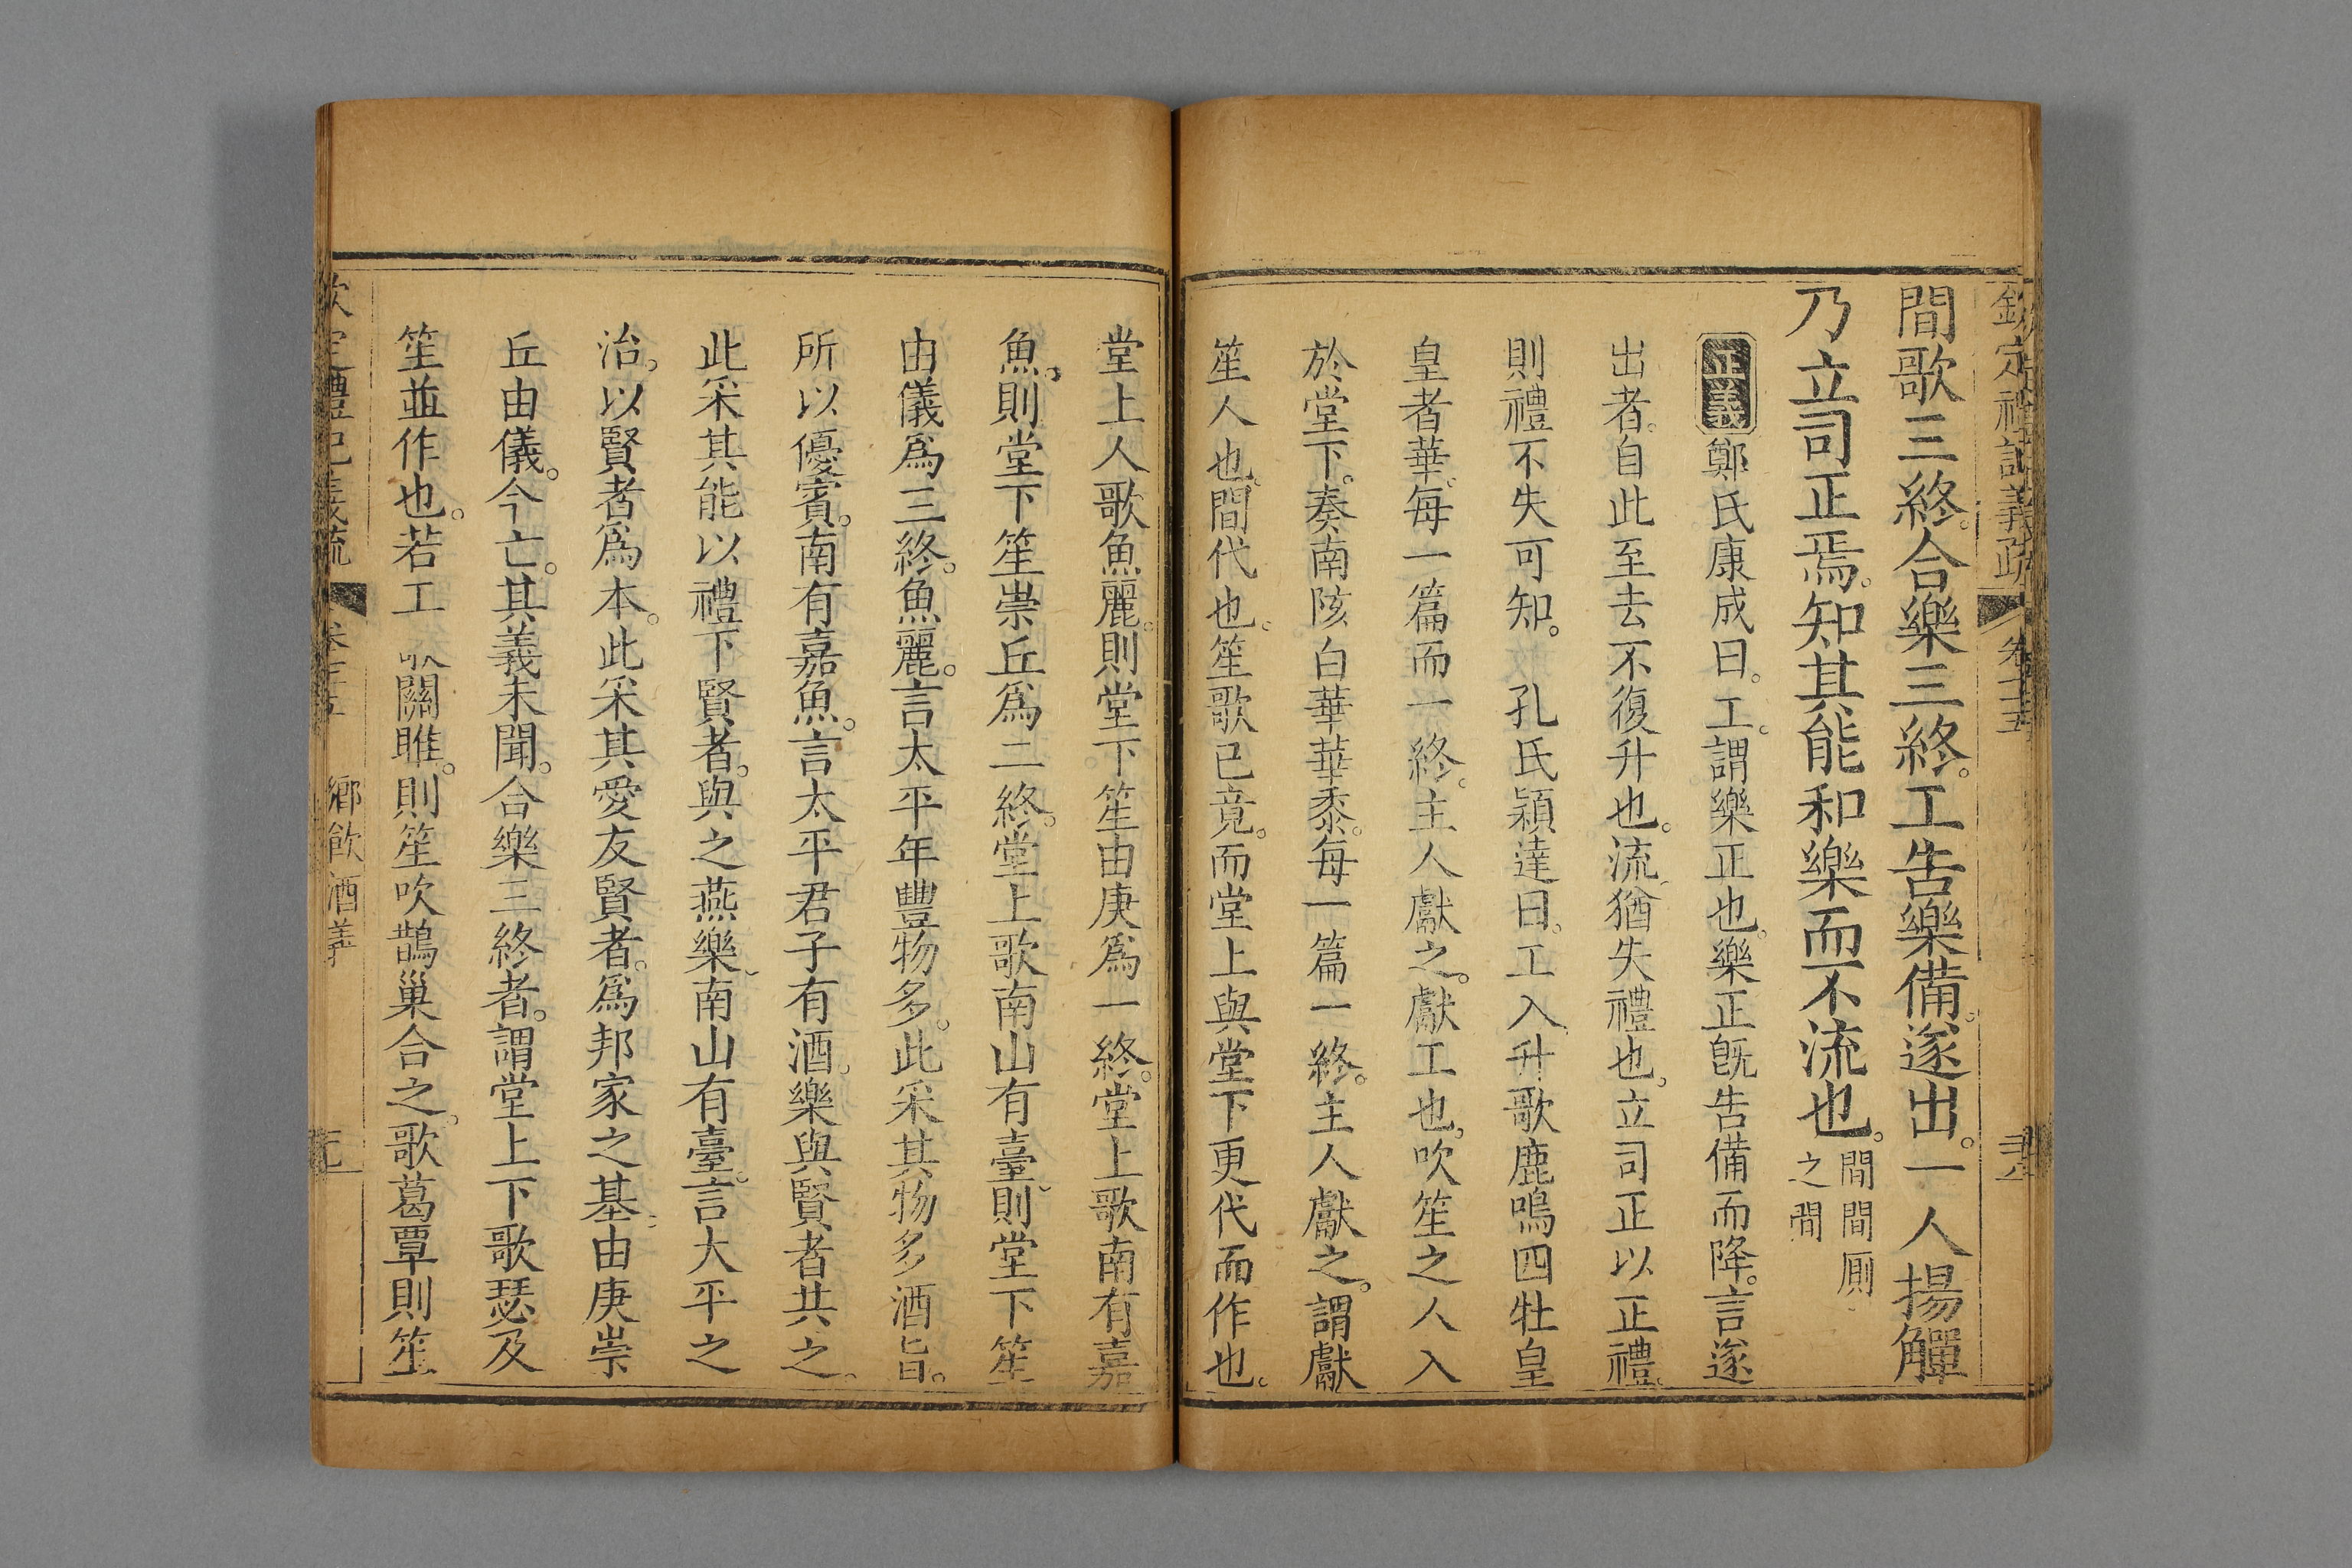 欽定禮記義疏
卷七十五
間歌三終。合樂三終。工告樂備。遂出。一人揚觶
乃立司正焉。知其能和樂而不流也。間間厠
之間
正義鄭氏康成曰。工。謂樂正也。樂正既告備而降。言遂
出者。自此至去不復升也。流。猶失禮也。立司正以正禮。
則禮不失可知。孔氏穎達曰。工入升歌鹿鳴四牡皇
皇者華。每一篇而一終。主人獻之。獻工也。吹笙之人入
於堂下。奏南陔白華華黍。每一篇一終。主人獻之。謂獻
笙人也。間代也。笙歌已竟。而堂上與堂下更代而作也。
堂上人歌魚麗。則堂下笙由庚爲一終。堂上歌南有嘉
魚。則堂下笙崇丘爲二終。堂上歌南山有臺。則堂下笙
由儀爲三終。魚麗。言太平年豐物多。此采其物多酒旨。
所以優賓。南有嘉魚。言太平君子有酒。樂與賢者共之。
此采其能以禮下賢者。與之燕樂。南山有臺。言大平之
治。以賢者爲本。此采其愛友賢者。爲邦家之基。由庚崇
丘由儀。今亡。其義未聞。合樂三終者。謂堂上下歌瑟及
笙並作也。若工歌關雎。則笙吹鵲巢合之。歌葛覃則笙
欽定禮記義疏
鄉飲酒義